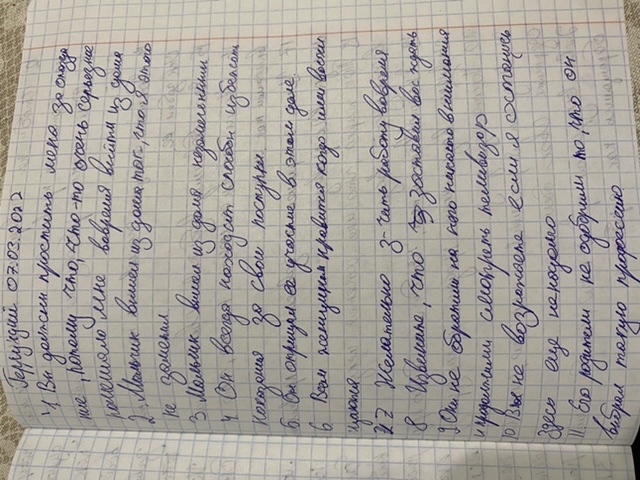 Герундий 07.03.2022
1) Вы должны простить меня за опозда
ние, потому что, что-то очень серьезное
помешало мне вовремя выйти из дома
2 Мальчик вышел из дома так, что я этого
не заметил
3 Мальчик вышел из дома незамеченным
4 Он всегда находит способ избежать
наказания за свои поступки
5 Он отрицал ее участие в этом деле
6 Всем женщинам нравится когда ими восхи
щаются
7 Желательно з-чить работу вовремя
8 Извините, что заставил вас ждать
9 Они не обратили на него никакого внимания
и продолжали смотреть телевизор
10 Вы не возражаете если я останусь
здесь еще ненадолго
11 Его родители не одобрили то, что он
выбрал такую профессию